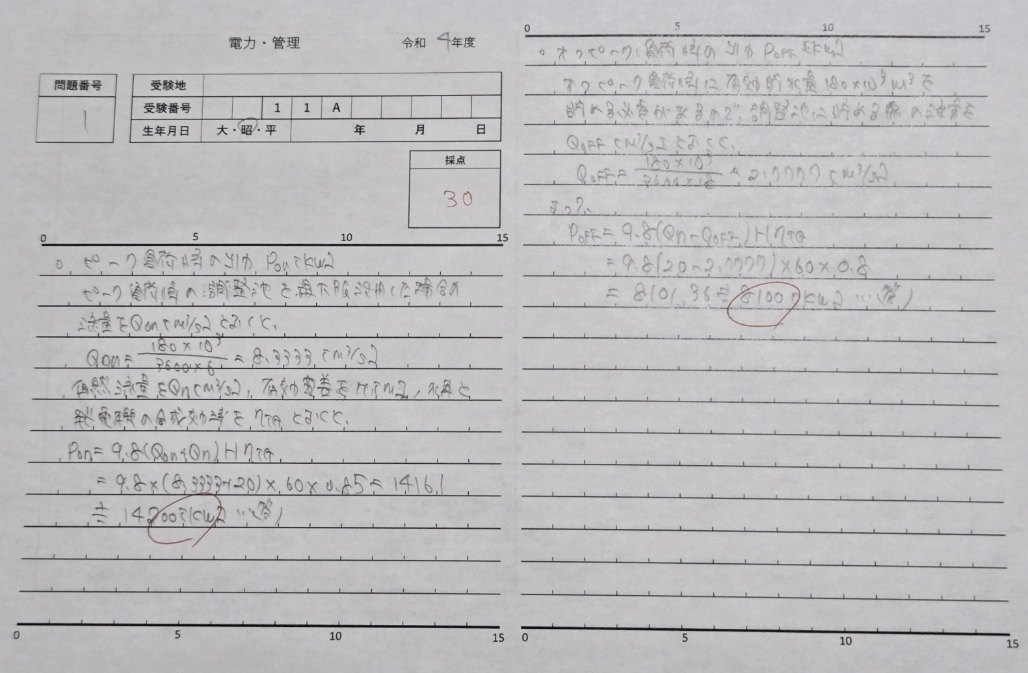 電力・管理
令和 4年度
問題番号
1
受験地
受験番号 1 1 A
生年月日 大・昭・平 年 月 日
採点
30
0 5 10 15
○ ピーク負荷時の出力 Pon [kW]
ピーク負荷時の調整池を最大限活用した場合の
流量をQon [m³/s] とおくと、
Qon = 180×10³ / 3600×6 = 8.3333 [m³/s]
自然流量をQn [m³/s], 有効落差をH [m], 水車と
発電機の合成効率を ηTG とおくと、
Pon = 9.8(Qon+Qn)HηTG
= 9.8×(8.3333+20)×60×0.85 = 1416.1
≒ 14200 [kW] …(答)
0 5 10 15
0 5 10 15
○ オフピーク負荷時の出力 POFF [kW]
オフピーク負荷時に有効貯水量 180×10³ m³を
貯める必要があるので、調整池に貯める際の流量を
QOFF [m³/s] とおくと、
QOFF = 180×10³ / 3600×18 = 2.7777 [m³/s]
よって、
POFF = 9.8(Qn-QOFF)HηTG
= 9.8(20-2.7777)×60×0.8
= 8101.36 ≒ 8100 [kW] …(答)
0 5 10 15